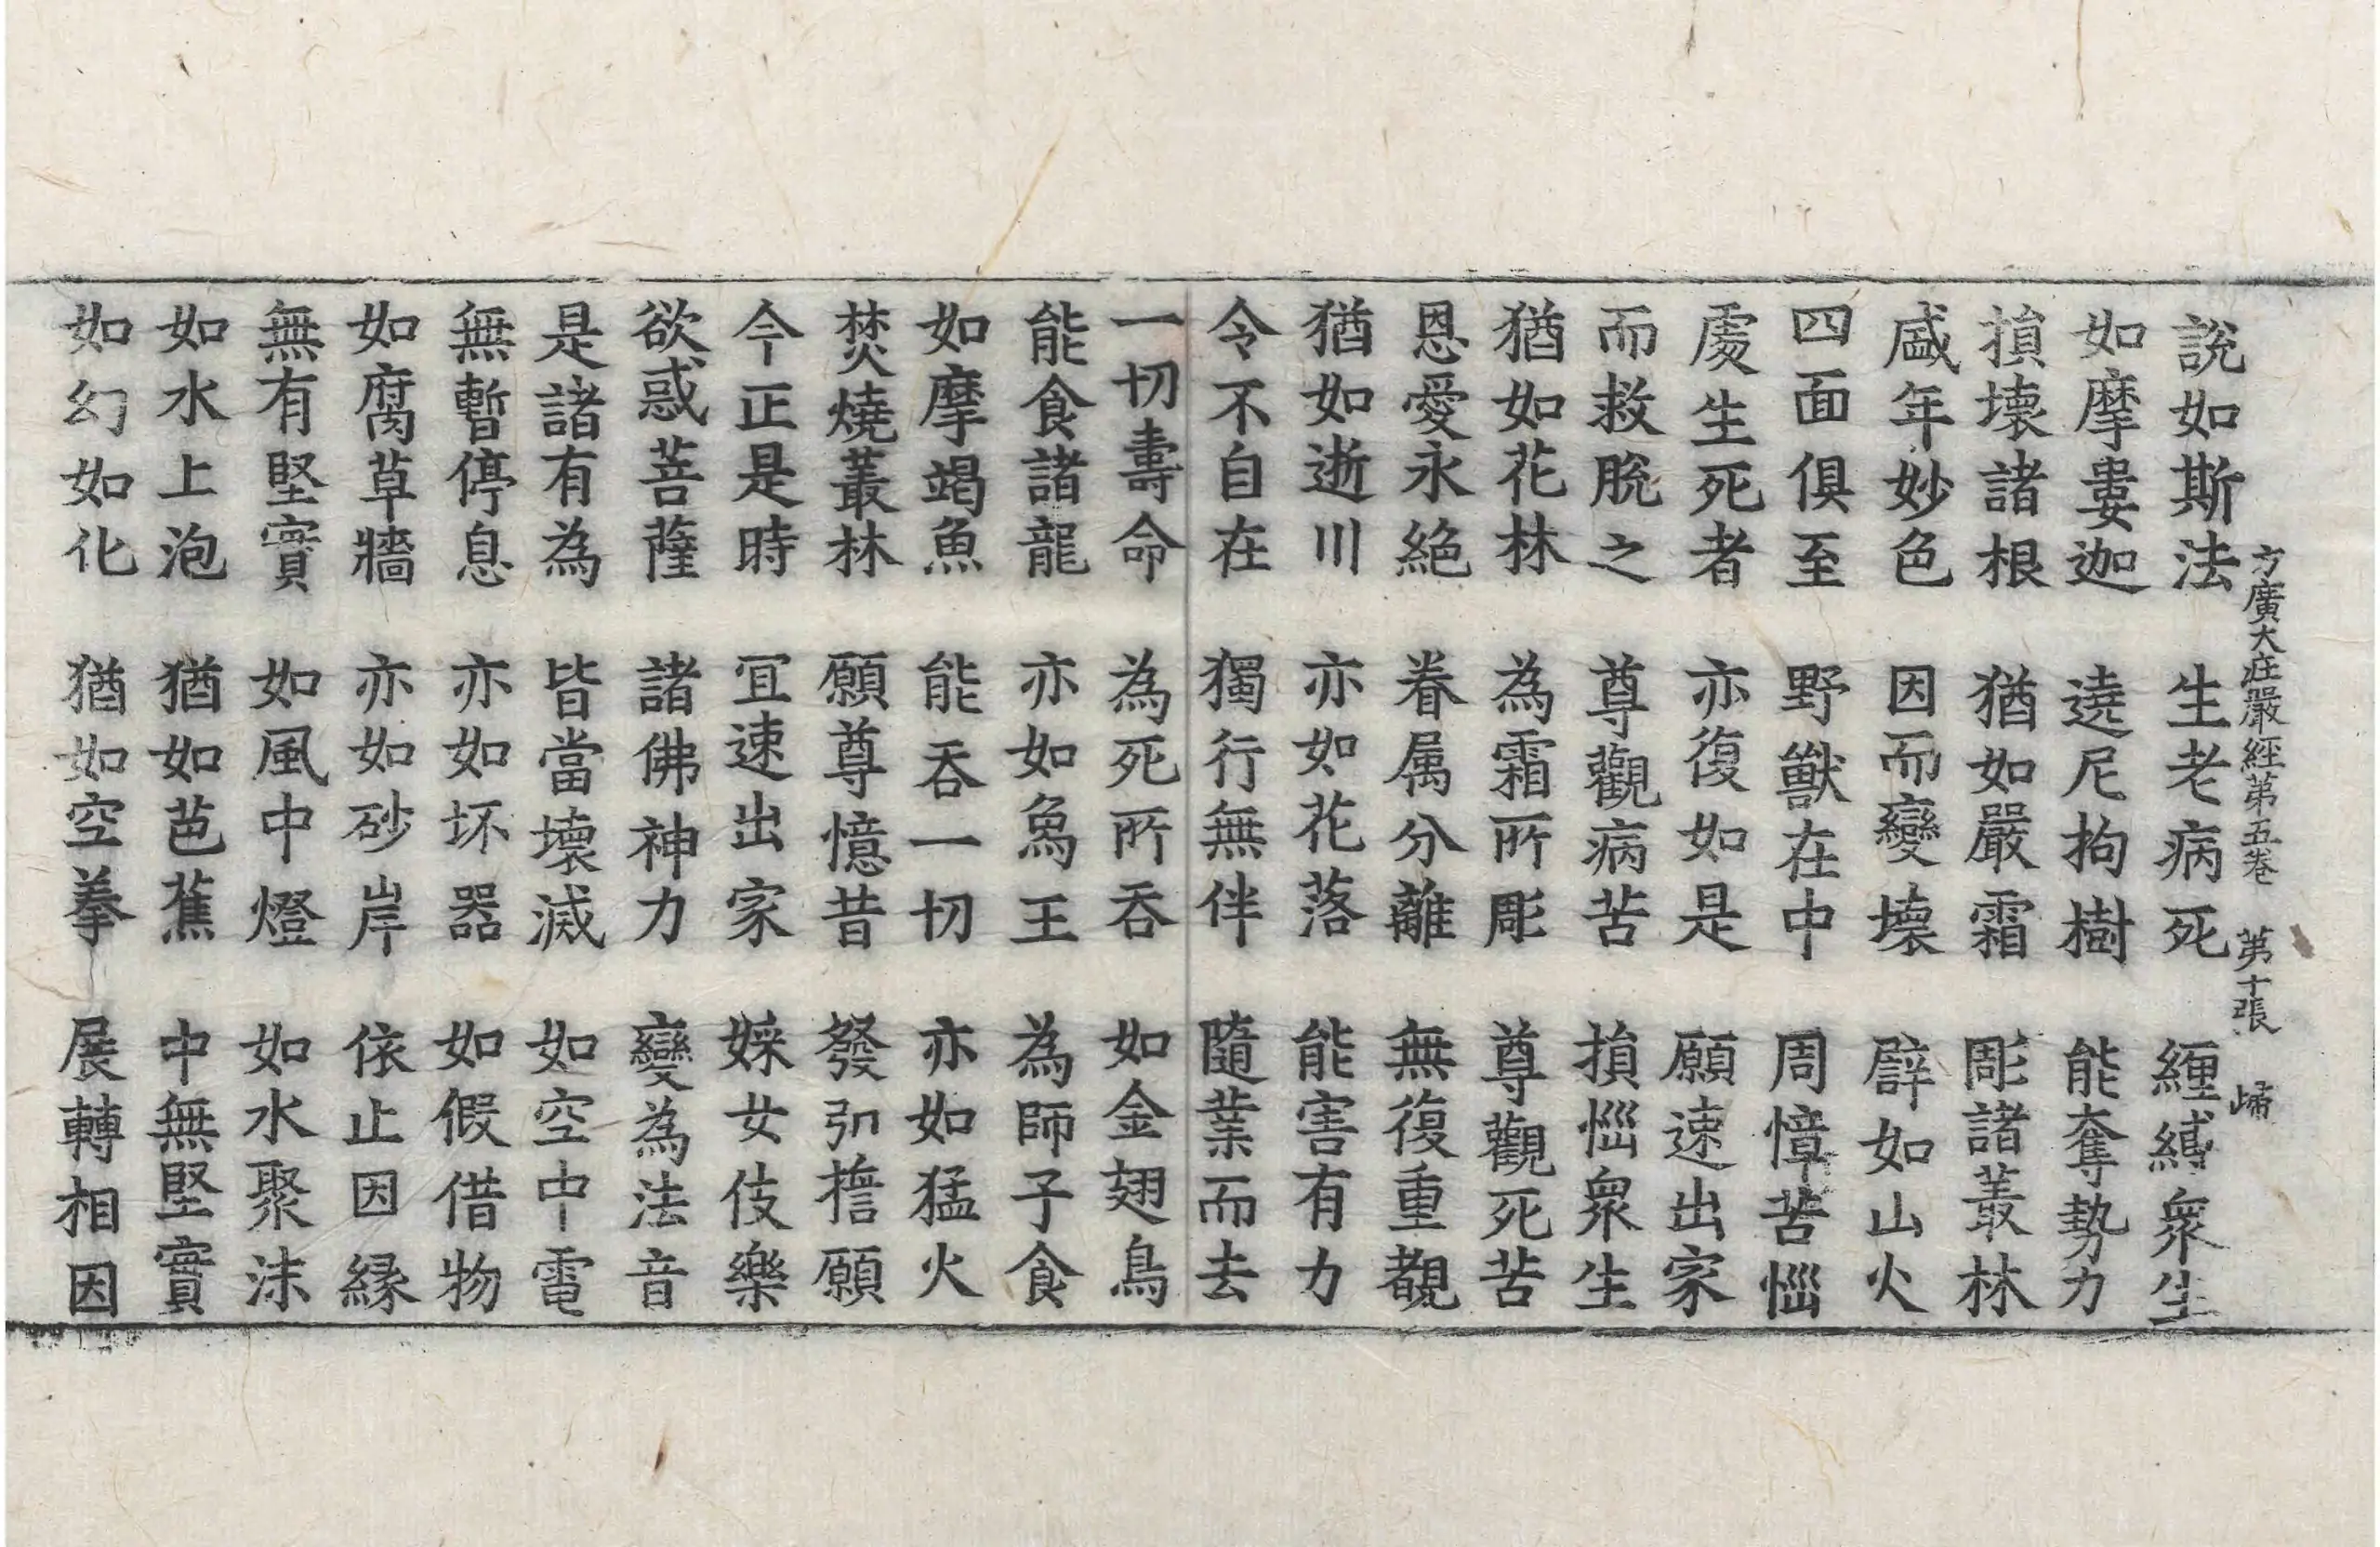 方廣大庄嚴經第五卷 第十張 㟴
說如斯法 生老病死 纏縛衆生
如摩婁迦 遶尼拘樹 能奪勢力
損壞諸根 猶如嚴霜 彫諸叢林
盛年妙色 因而變壞 譬如山火
四面俱至 野獸在中 周慞苦惱
處生死者 亦復如是 願速出家
而救脫之 尊觀病苦 損惱衆生
猶如花林 為霜所彫 尊觀死苦
恩愛永絕 眷属分離 無復重覩
猶如逝川 亦如花落 能害有力
令不自在 獨行無伴 隨業而去
一切壽命 為死所吞 如金翅鳥
能食諸龍 亦如象王 為師子食
如摩竭魚 能吞一切 亦如猛火
焚燒叢林 願尊憶昔 發弘誓願
今正是時 冝速出家 婇女伎樂
欲惑菩薩 諸佛神力 變為法音
是諸有為 皆當壞滅 如空中電
無暫停息 亦如坏器 如假借物
如腐草牆 亦如砂岸 依止因緣
無有堅實 如風中燈 如水聚沫
如水上泡 猶如芭蕉 中無堅實
如幻如化 猶如空拳 展轉相因